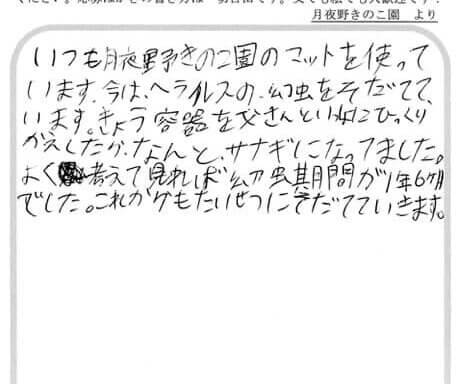 月夜野きのこ園　より
いつも月夜野きのこ園のマットを使って
います、今は、ヘラクレスの、幻虫をそだてて、
います。きょう容器を父さんといっしょにひっくり
かえしたが、なんと、サナギになってました。
よく考えて見れば幻虫期間が1年6ヶ月
でした。これからもたいせつにそだてていきます。